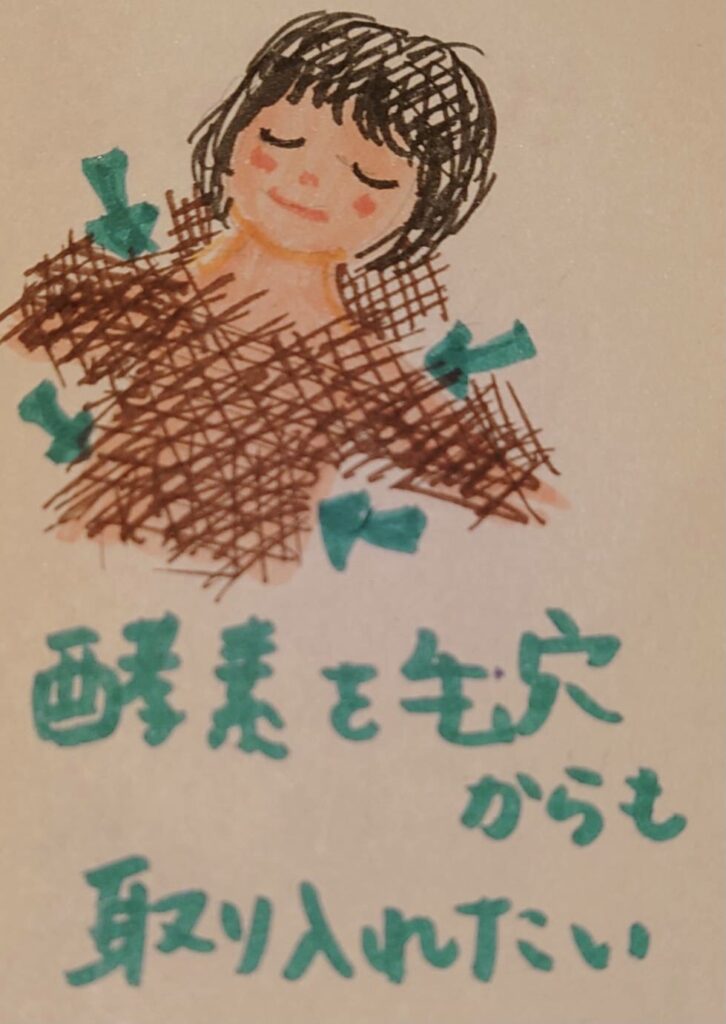 酵素を毛穴
からも
取り入れたい